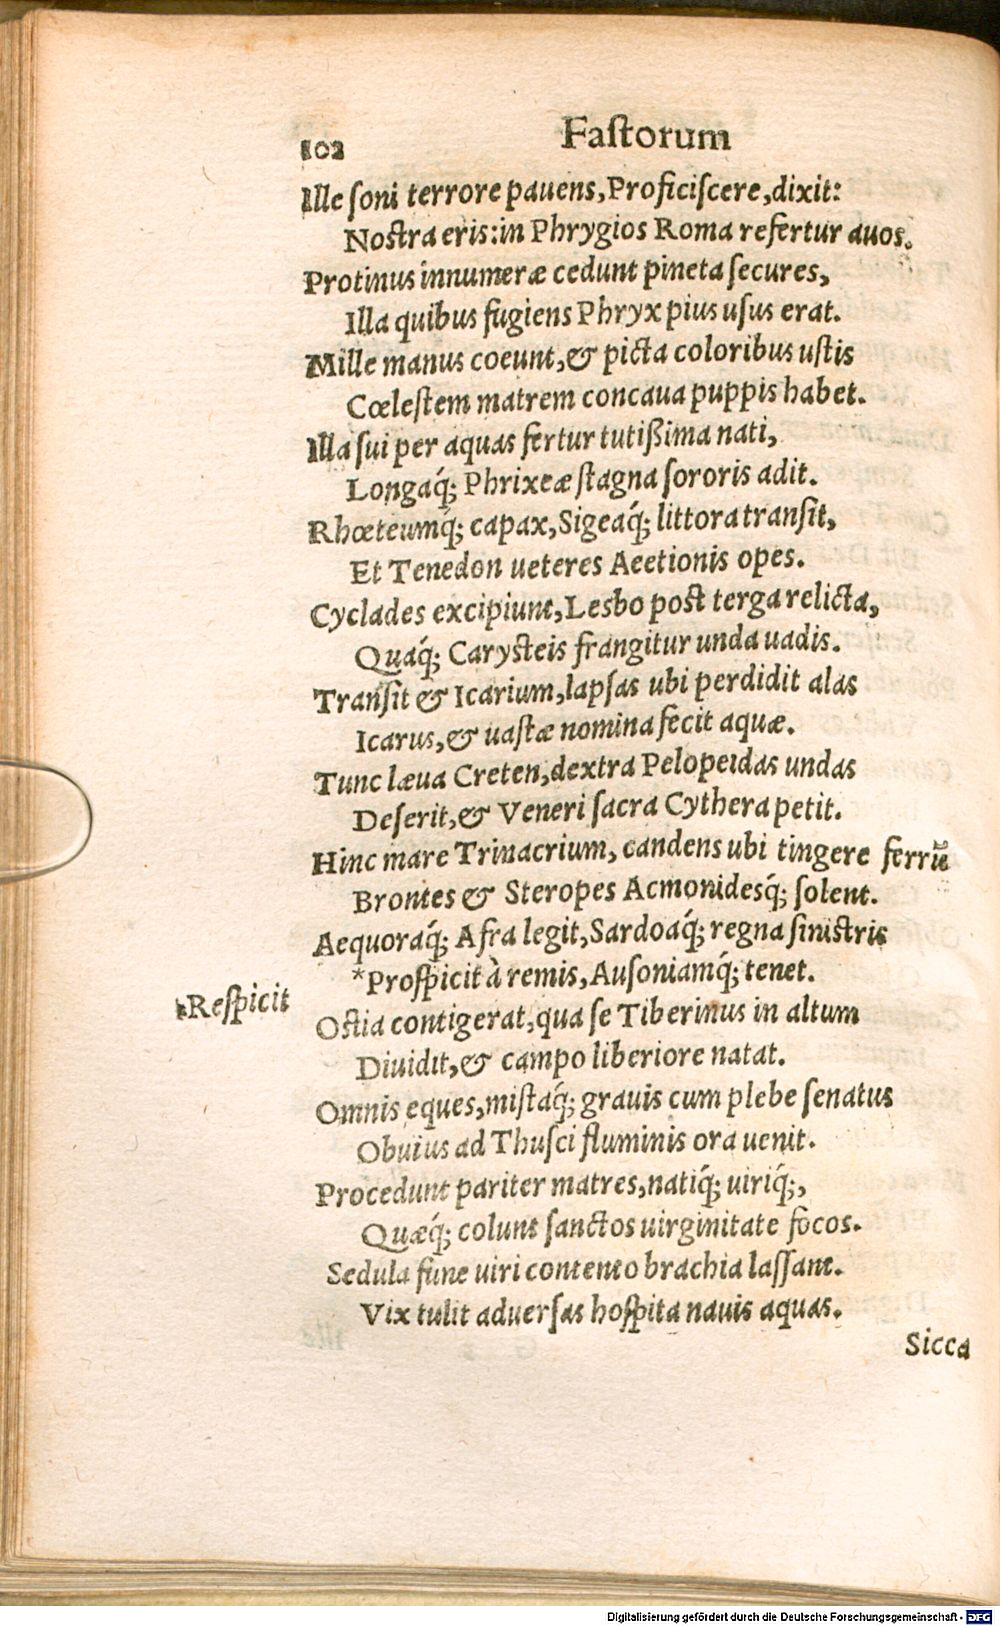 102 Fastorum
Ille soni terrore pauens, Proficiscere, dixit:
Nostra eris: in Phrygios Roma refertur auos.
Protinus innumeræ cedunt pineta secures,
Illa quibus fugiens Phryx pius usus erat.
Mille manus coeunt, & picta coloribus ustis
Cœlestem matrem concaua puppis habet.
Illa sui per aquas fertur tutißima nati,
Longaq́; Phrixeæ stagna sororis adit.
Rhœteumq́; capax, Sigeaq́; littora transit,
Et Tenedon ueteres Aeetionis opes.
Cyclades excipiunt, Lesbo post terga relicta,
Quaq́; Carysteis frangitur unda uadis.
Transit & Icarium, lapsas ubi perdidit alas
Icarus, & uastæ nomina fecit aquæ.
Tunc læua Creten, dextra Pelopeidas undas
Deserit, & Veneri sacra Cythera petit.
Hinc mare Trinacrium, candens ubi tingere ferrū
Brontes & Steropes Acmonidesq́; solent.
Aequoraq́; Afra legit, Sardoaq́; regna sinistris
*Prospicit à remis, Ausoniamq́; tenet.
*Respicit
Ostia contigerat, qua se Tiberinus in altum
Diuidit, & campo liberiore natat.
Omnis eques, mistaq́; grauis cum plebe senatus
Obuius ad Thusci fluminis ora uenit.
Procedunt pariter matres, natiq́; uiriq́;,
Quæq́; colunt sanctos uirginitate focos.
Sedula fune uiri contento brachia lassant.
Vix tulit aduersas hospita nauis aquas.
Sicca
Digitalisierung gefördert durch die Deutsche Forschungsgemeinschaft - DFG